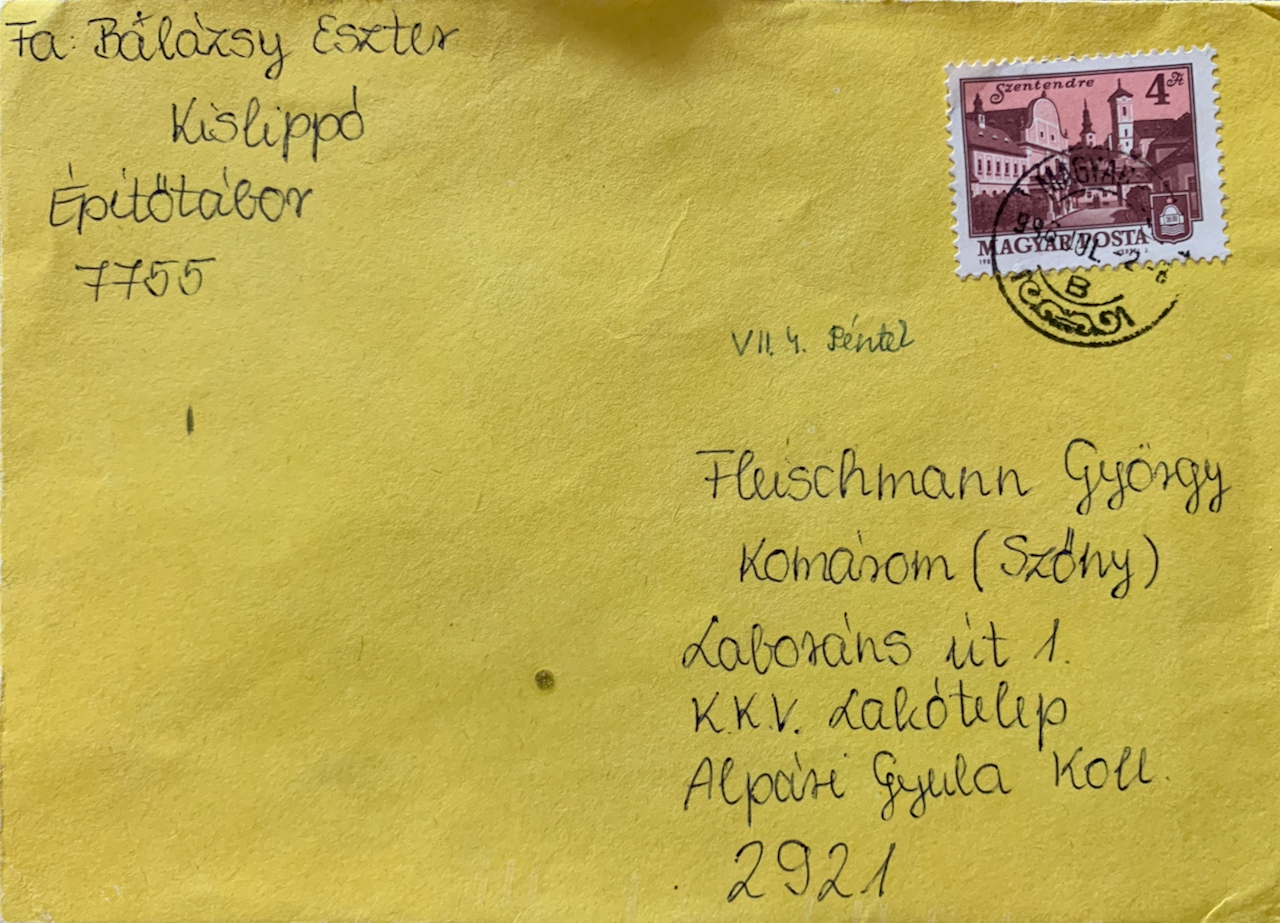 Fa: Bálázsy Eszter
Kislippó
Építőtábor
7755
Szentendre 4 Ft
MAGYAR POSTA
MAGYAR
JÚL
B
VII. 4. Péntek
Fleischmann György
Komárom (Szőny)
Laboráns út 1.
K.K.V. Lakótelep
Alpári Gyula Koll.
2921